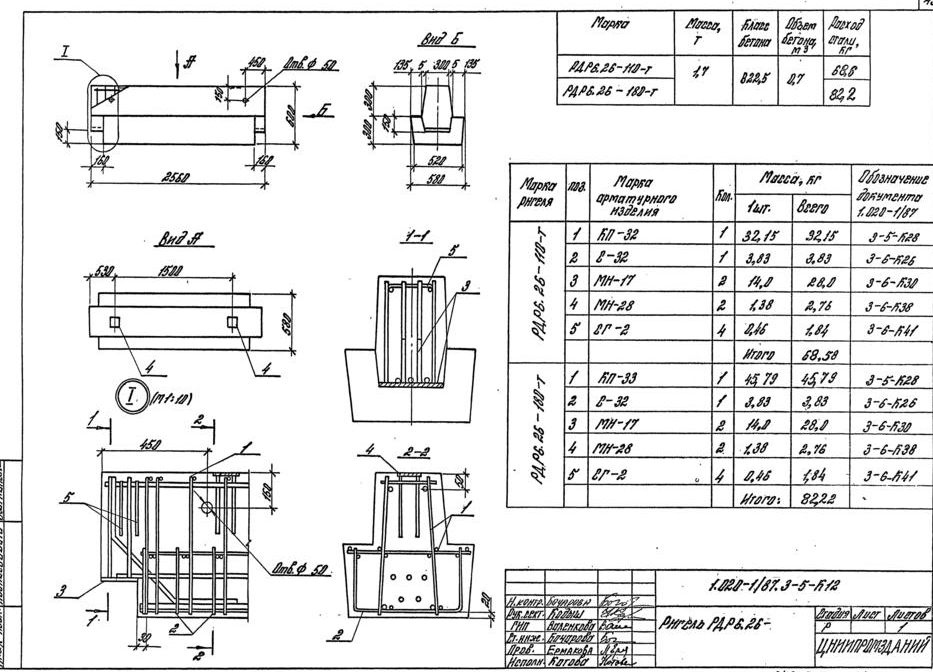 I
А
Отв.ф 50
450
150
600
Б
150
160
160
2560
Вид Б
135 5 300 5 135
300
300
150
520
580
Марка
Масса, т
Класс бетона
Объем бетона, м3
Расход стали, кг
РДР6.26-110-т
1,7
В22,5
0,7
68,6
РДР6.26-180-т
82,2
Вид А
530
1500
580
4
4
I
(М1:10)
1-1
5
3
Марка ригеля
поз.
Марка арматурного изделия
Кол.
Масса, кг
1шт.
Всего
Обозначение документа 1.020-1/87
РДР6.26-110-т
1 КП-32 1 32,15 32,15 3-5-К28
2 С-32 1 3,83 3,83 3-6-К26
3 МН-17 2 14,0 28,0 3-6-К30
4 МН-28 2 1,38 2,76 3-6-К38
5 СГ-2 4 0,46 1,84 3-6-К41
Итого 68,58
РДР6.26-180-т
1 КП-33 1 45,79 45,79 3-5-К28
2 С-32 1 3,83 3,83 3-6-К26
3 МН-17 2 14,0 28,0 3-6-К30
4 МН-28 2 1,38 2,76 3-6-К38
5 СГ-2 4 0,46 1,84 3-6-К41
Итого: 82,22
1
2
450
1
150
5
Отв. ф 50
3
1
2
30
2
2-2
4
50
1
20
2
1.020-1/87.3-5-К12
Н.контр. Бочарова
Рук.сект.
ГИП Валенкова
Ст.инже. Бочарова
Пров. Ермакова
Исполн. Котова
Ригель РДР6.26-
Стадия Лист Листов
Р 1
ЦНИИПРОМЗДАНИЙ